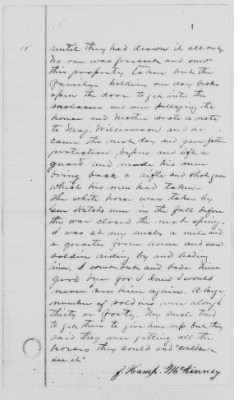 until they had drawn it all out
No one was present and saw
this property taken but the
family. Soldiers one day broke
open the door to get into the
molasses and were pillaging the
house and Mother wrote a note
to Maj. Williamson and he
came the next day and gave
protection papers and left a
guard and made his men
bring back a rifle and shotgun
which his men had taken.
The white horse was taken by
Gen Hatch's men in the fall before
the war closed the next spring.
I was at my uncles a mile and
a quarter from home and saw
soldier riding by and leading
him, I went out and bade him
good bye for I knew I would
never see him again. A large
number of soldiers were along
thirty or forty. My uncle tried
to get them to give him up but they
said they were getting all the
horses they could and couldn't
J. Hamp. McKinney